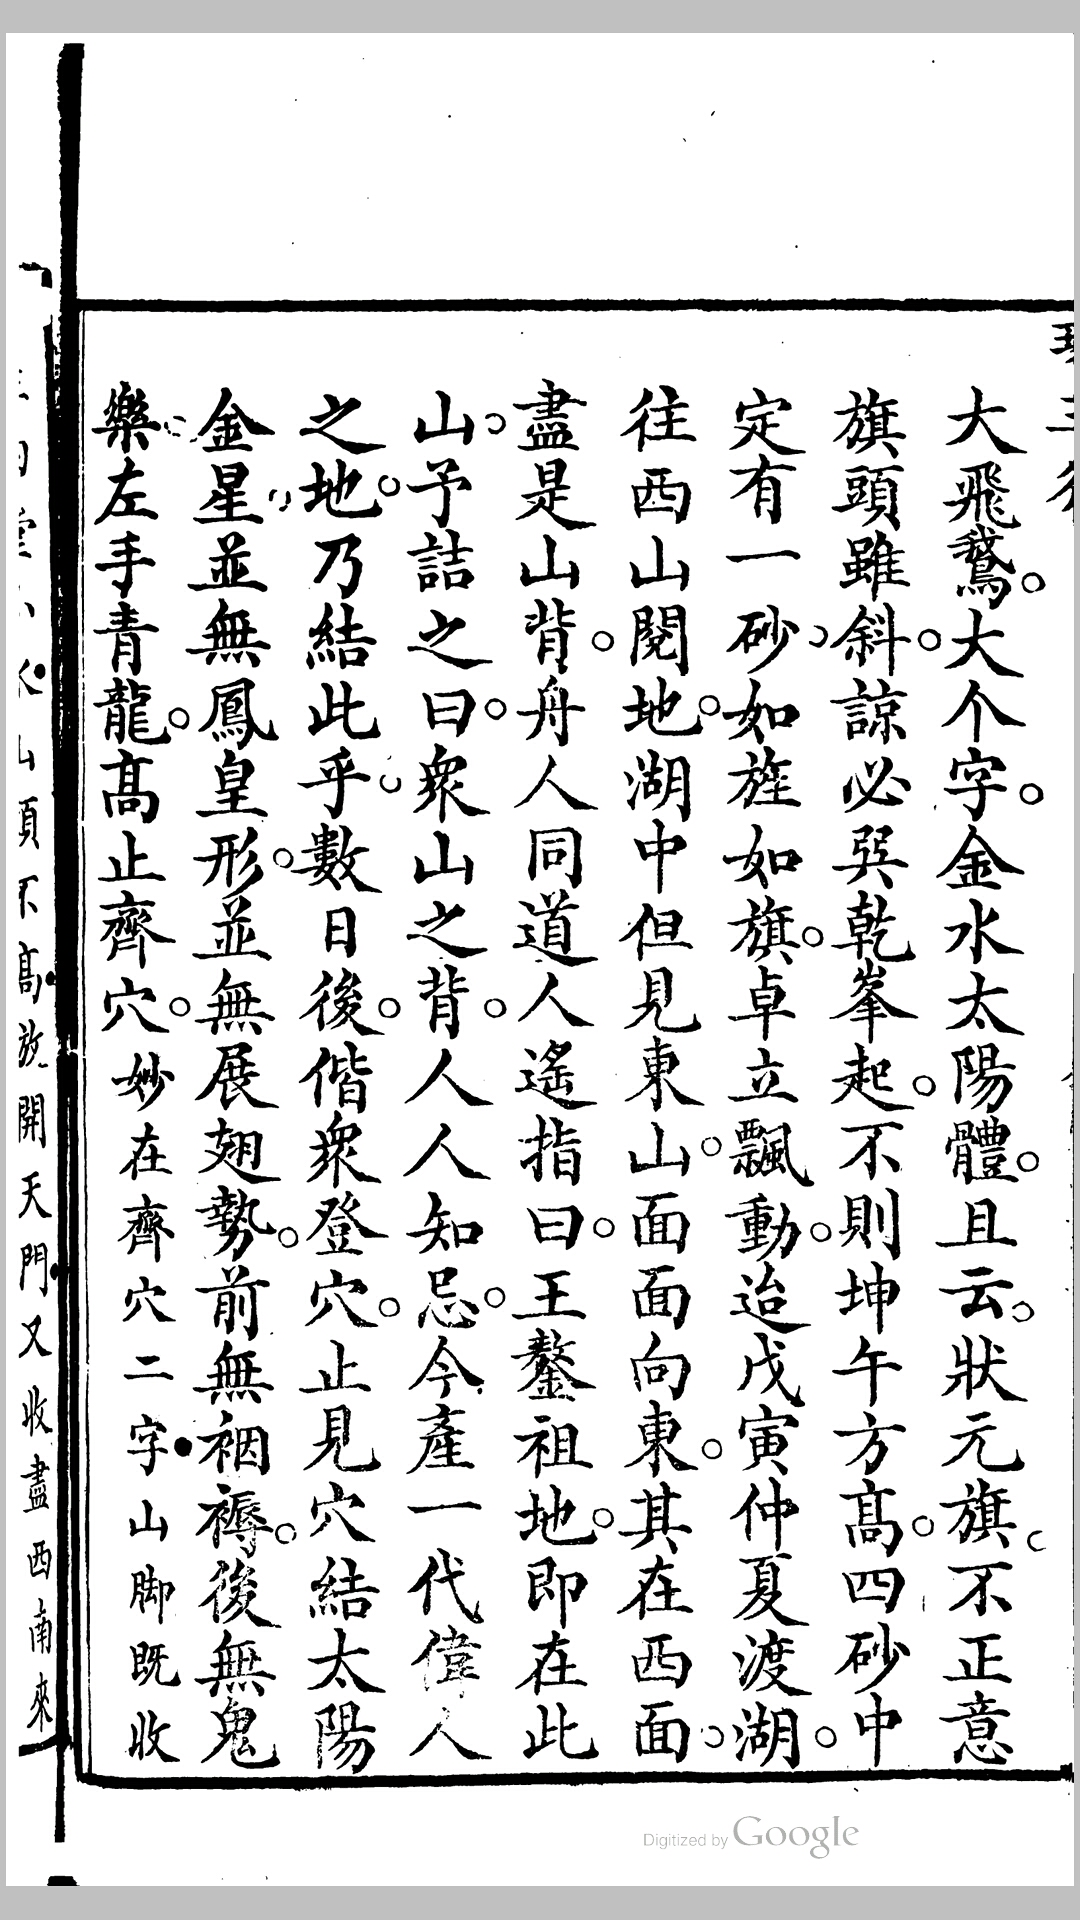 大飛鵞大个字金水太陽體且云狀元旗不正意
旗頭雖斜諒必巽乾峯起不則坤午方高四砂中
定有一砂如旌如旗卓立飄動迨戊寅仲夏渡湖
往西山閱地湖中但見東山面面向東其在西面
盡是山背舟人同道人遙指曰王鏊祖地即在此
山予詰之曰衆山之背人人知忌今產一代偉人
之地乃結此乎數日後偕衆登穴止見穴結太陽
金星並無鳳皇形並無展翅勢前無裀褥後無鬼
樂左手青龍高止齊穴妙在齊穴二字山脚既收
山頂不高放開天門又收盡西南來
Digitized by Google